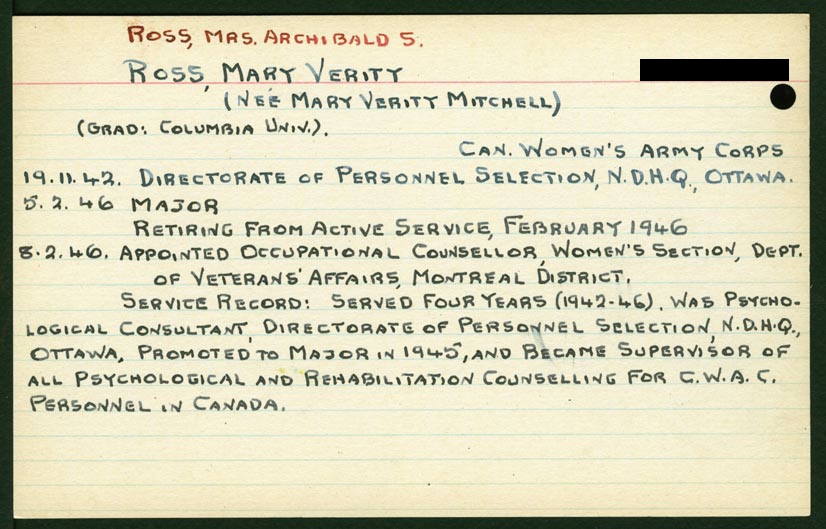 ROSS, MRS. ARCHIBALD S.
ROSS, MARY VERITY
(NEÉ MARY VERITY MITCHELL)
(GRAD: COLUMBIA UNIV.).
CAN. WOMEN'S ARMY CORPS
19.11.42. DIRECTORATE OF PERSONNEL SELECTION, N.D.H.Q., OTTAWA.
5.2.46 MAJOR
RETIRING FROM ACTIVE SERVICE, FEBRUARY 1946
8.2.46. APPOINTED OCCUPATIONAL COUNSELLOR, WOMEN'S SECTION, DEPT.
OF VETERANS' AFFAIRS, MONTREAL DISTRICT.
SERVICE RECORD: SERVED FOUR YEARS (1942-46). WAS PSYCHO-
LOGICAL CONSULTANT, DIRECTORATE OF PERSONNEL SELECTION, N.D.H.Q.,
OTTAWA, PROMOTED TO MAJOR IN 1945, AND BECAME SUPERVISOR OF
ALL PSYCHOLOGICAL AND REHABILITATION COUNSELLING FOR C.W.A.C.
PERSONNEL IN CANADA.